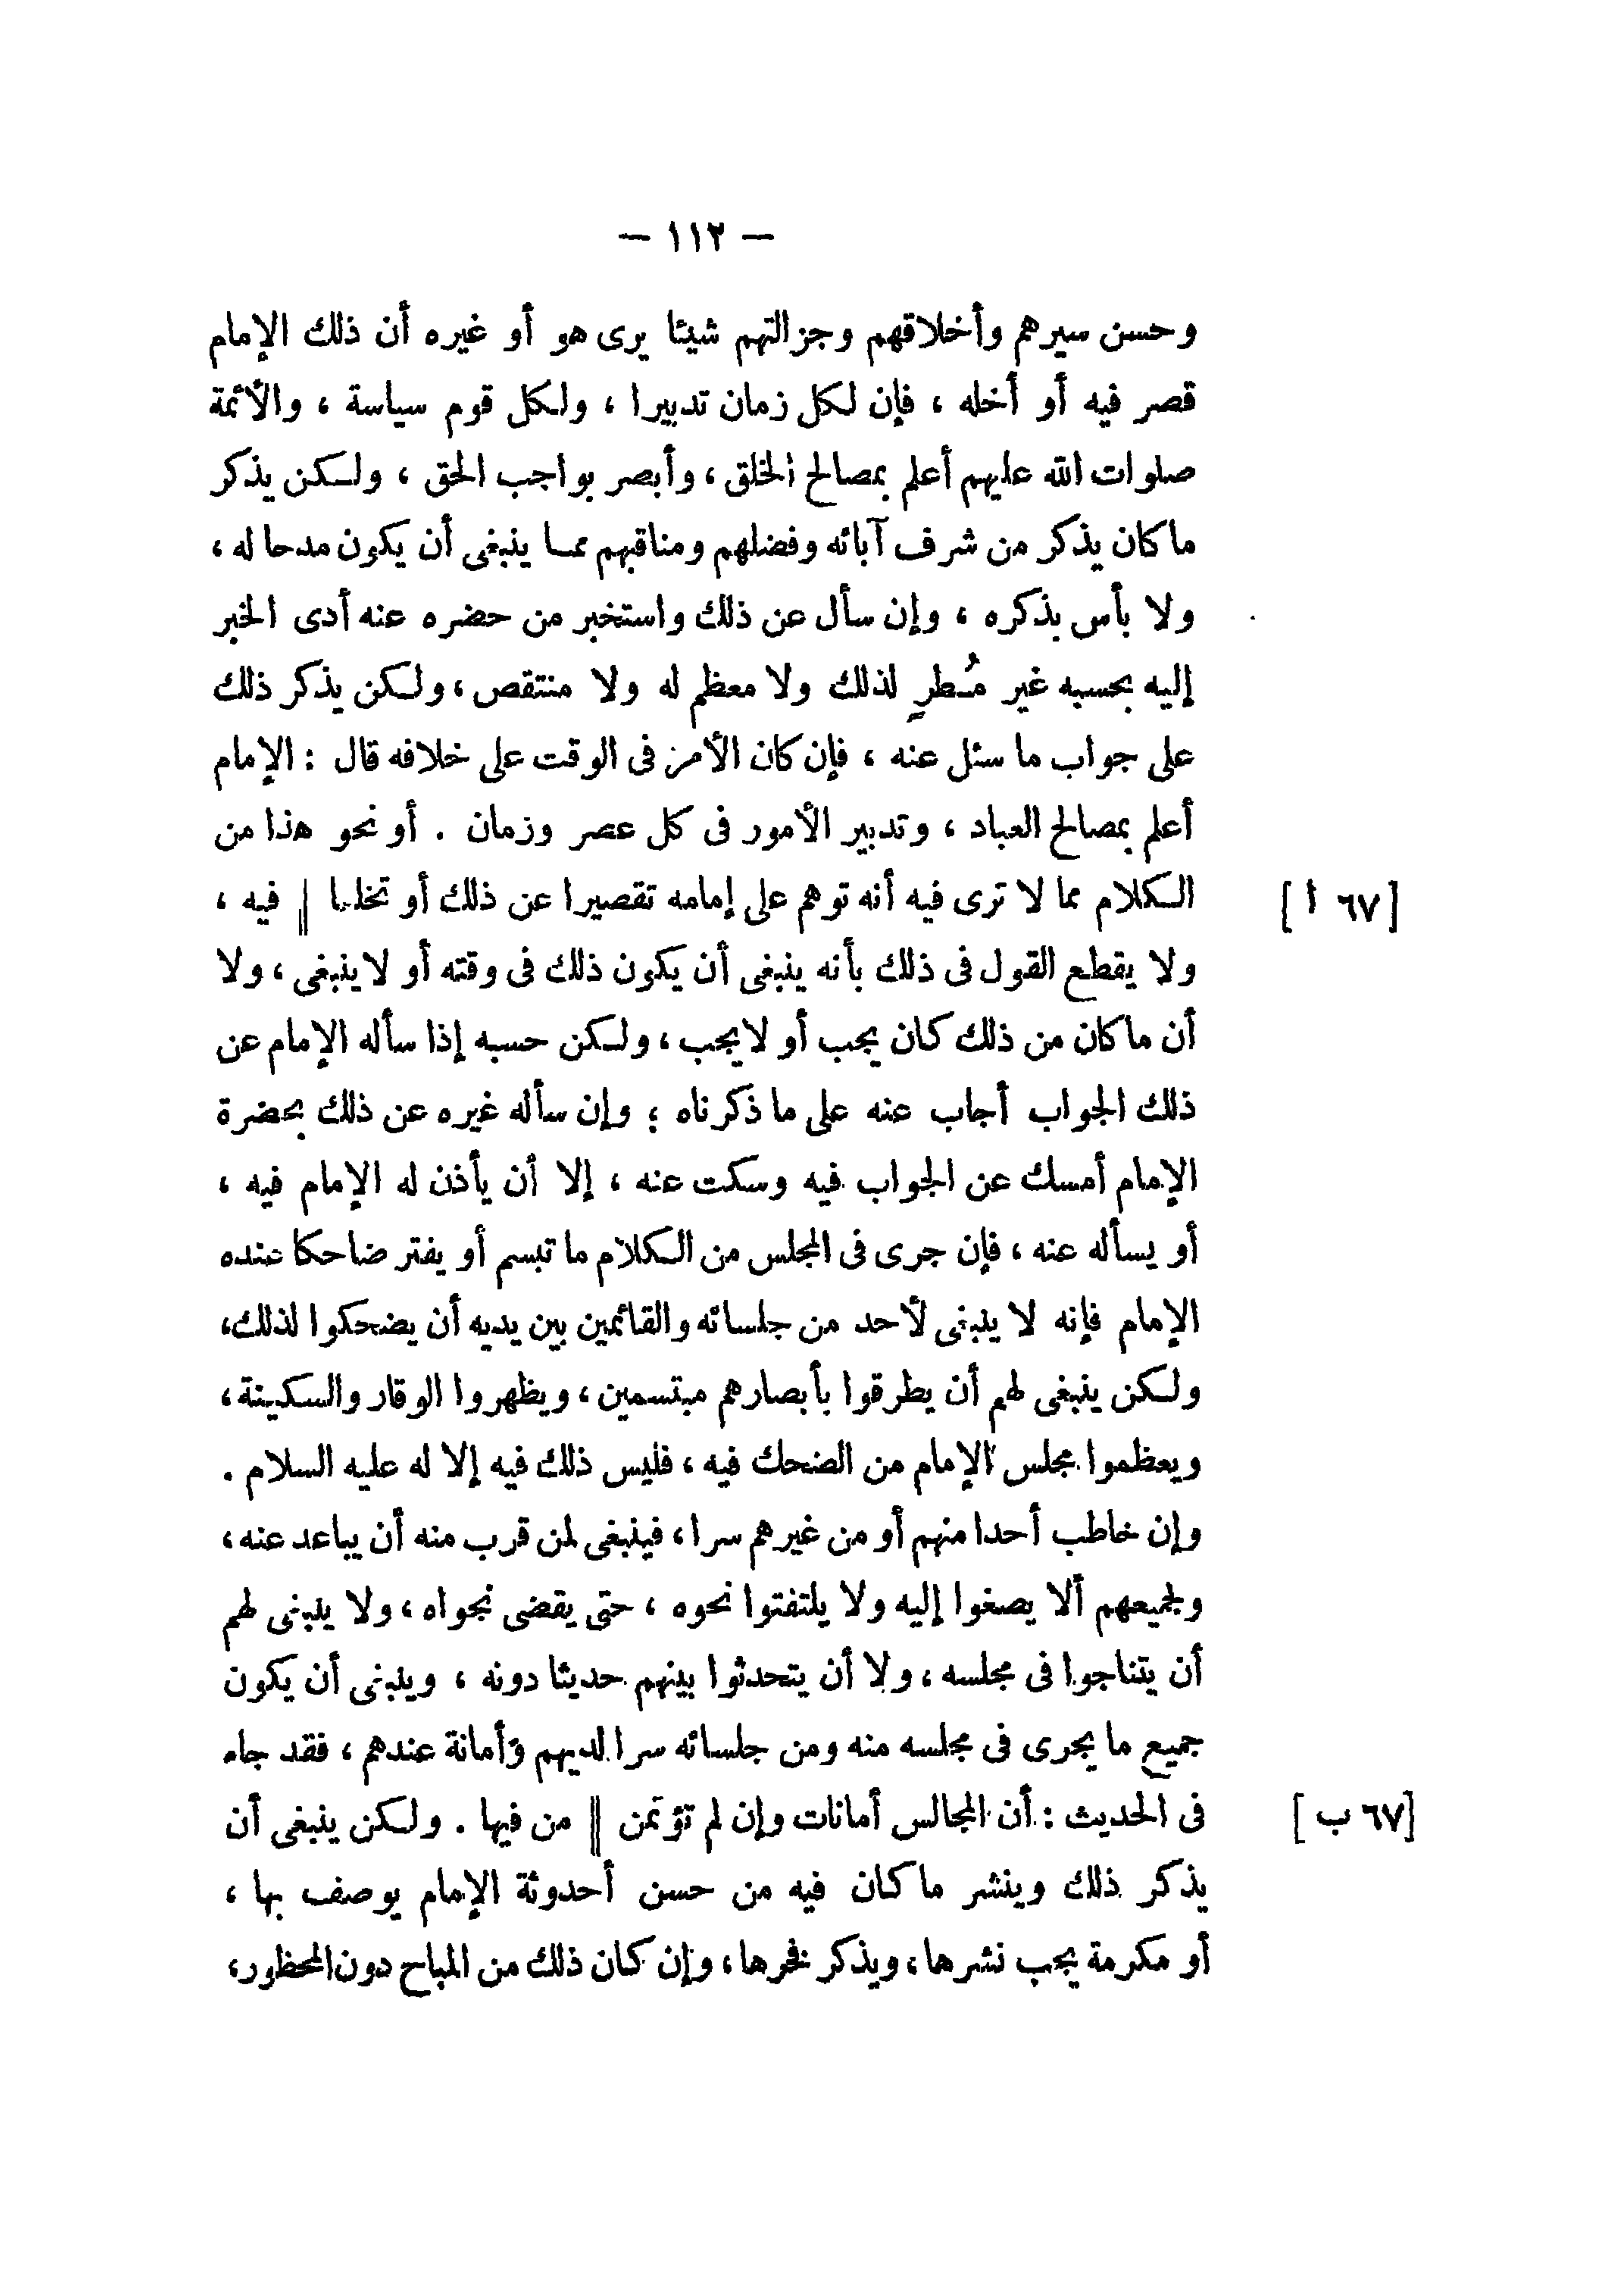 — ١١٢ —
وحسن سيرهم وأخلاقهم وجزالتهم شيئا يرى هو أو غيره أن ذلك الإمام
قصر فيه أو أخله ، فإن لكل زمان تدبيرا ، ولكل قوم سياسة ، والأئمة
صلوات الله عليهم أعلم بمصالح الخلق ، وأبصر بواجب الحق ، ولكن يذكر
ما كان يذكر من شرف آبائه وفضلهم ومناقبهم مما ينبغى أن يكون مدحا له ،
ولا بأس بذكره ، وإن سأل عن ذلك واستخبر من حضره عنه أدى الخبر
إليه بحسبه غير مُطرٍ لذلك ولا معظم له ولا منتقص ، ولكن يذكر ذلك
على جواب ما سئل عنه ، فإن كان الأمر فى الوقت على خلافه قال : الإمام
أعلم بمصالح العباد ، وتدبير الأمور فى كل عصر وزمان . أو نحو هذا من
الكلام مما لا ترى فيه أنه توهم على إمامه تقصيرا عن ذلك أو || فيه ، [٦٧ ا]
ولا يقطع القول فى ذلك بأنه ينبغى أن يكون ذلك فى وقته أو لا ينبغى ، ولا
أن ما كان من ذلك كان يجب أو لا يجب ، ولكن حسبه إذا سأله الإمام عن
ذلك الجواب أجاب عنه على ما ذكرناه ؛ وإن سأله غيره عن ذلك بحضرة
الإمام أمسك عن الجواب فيه وسكت عنه ، إلا أن يأذن له الإمام فيه ،
أو يسأله عنه ، فإن جرى فى المجلس من الكلام ما تبسم أو يفتر ضاحكا عنده
الإمام فإنه لا ينبغى لأحد من جلسائه والقائمين بين يديه أن يضحكوا لذلك،
ولكن ينبغى لهم أن يطرقوا بأبصارهم مبتسمين ، ويظهروا الوقار والسكينة ،
ويعظموا مجلس الإمام من الضحك فيه ، فليس ذلك فيه إلا له عليه السلام .
وإن خاطب أحدا منهم أو من غيرهم سرا ، فينبغى لمن قرب منه أن يباعد عنه ،
ولجميعهم ألا يصغوا إليه ولا يلتفتوا نحوه ، حتى يقضى نجواه ، ولا ينبغى لهم
أن يتناجوا فى مجلسه ، ولا أن يتحدثوا بينهم حديثا دونه ، وينبغى أن يكون
جميع ما يجرى فى مجلسه منه ومن جلسائه سرا لديهم وأمانة عندهم ، فقد جاء
فى الحديث : أن المجالس أمانات وإن لم تؤتمن || من فيها . ولكن ينبغى أن [٦٧ ب]
يذكر ذلك وينشر ما كان فيه من حسن أحدوثة الإمام يوصف بها ،
أو مكرمة يجب نشرها ، ويذكر فخرها ، وإن كان ذلك من المباح دون المحظور ،